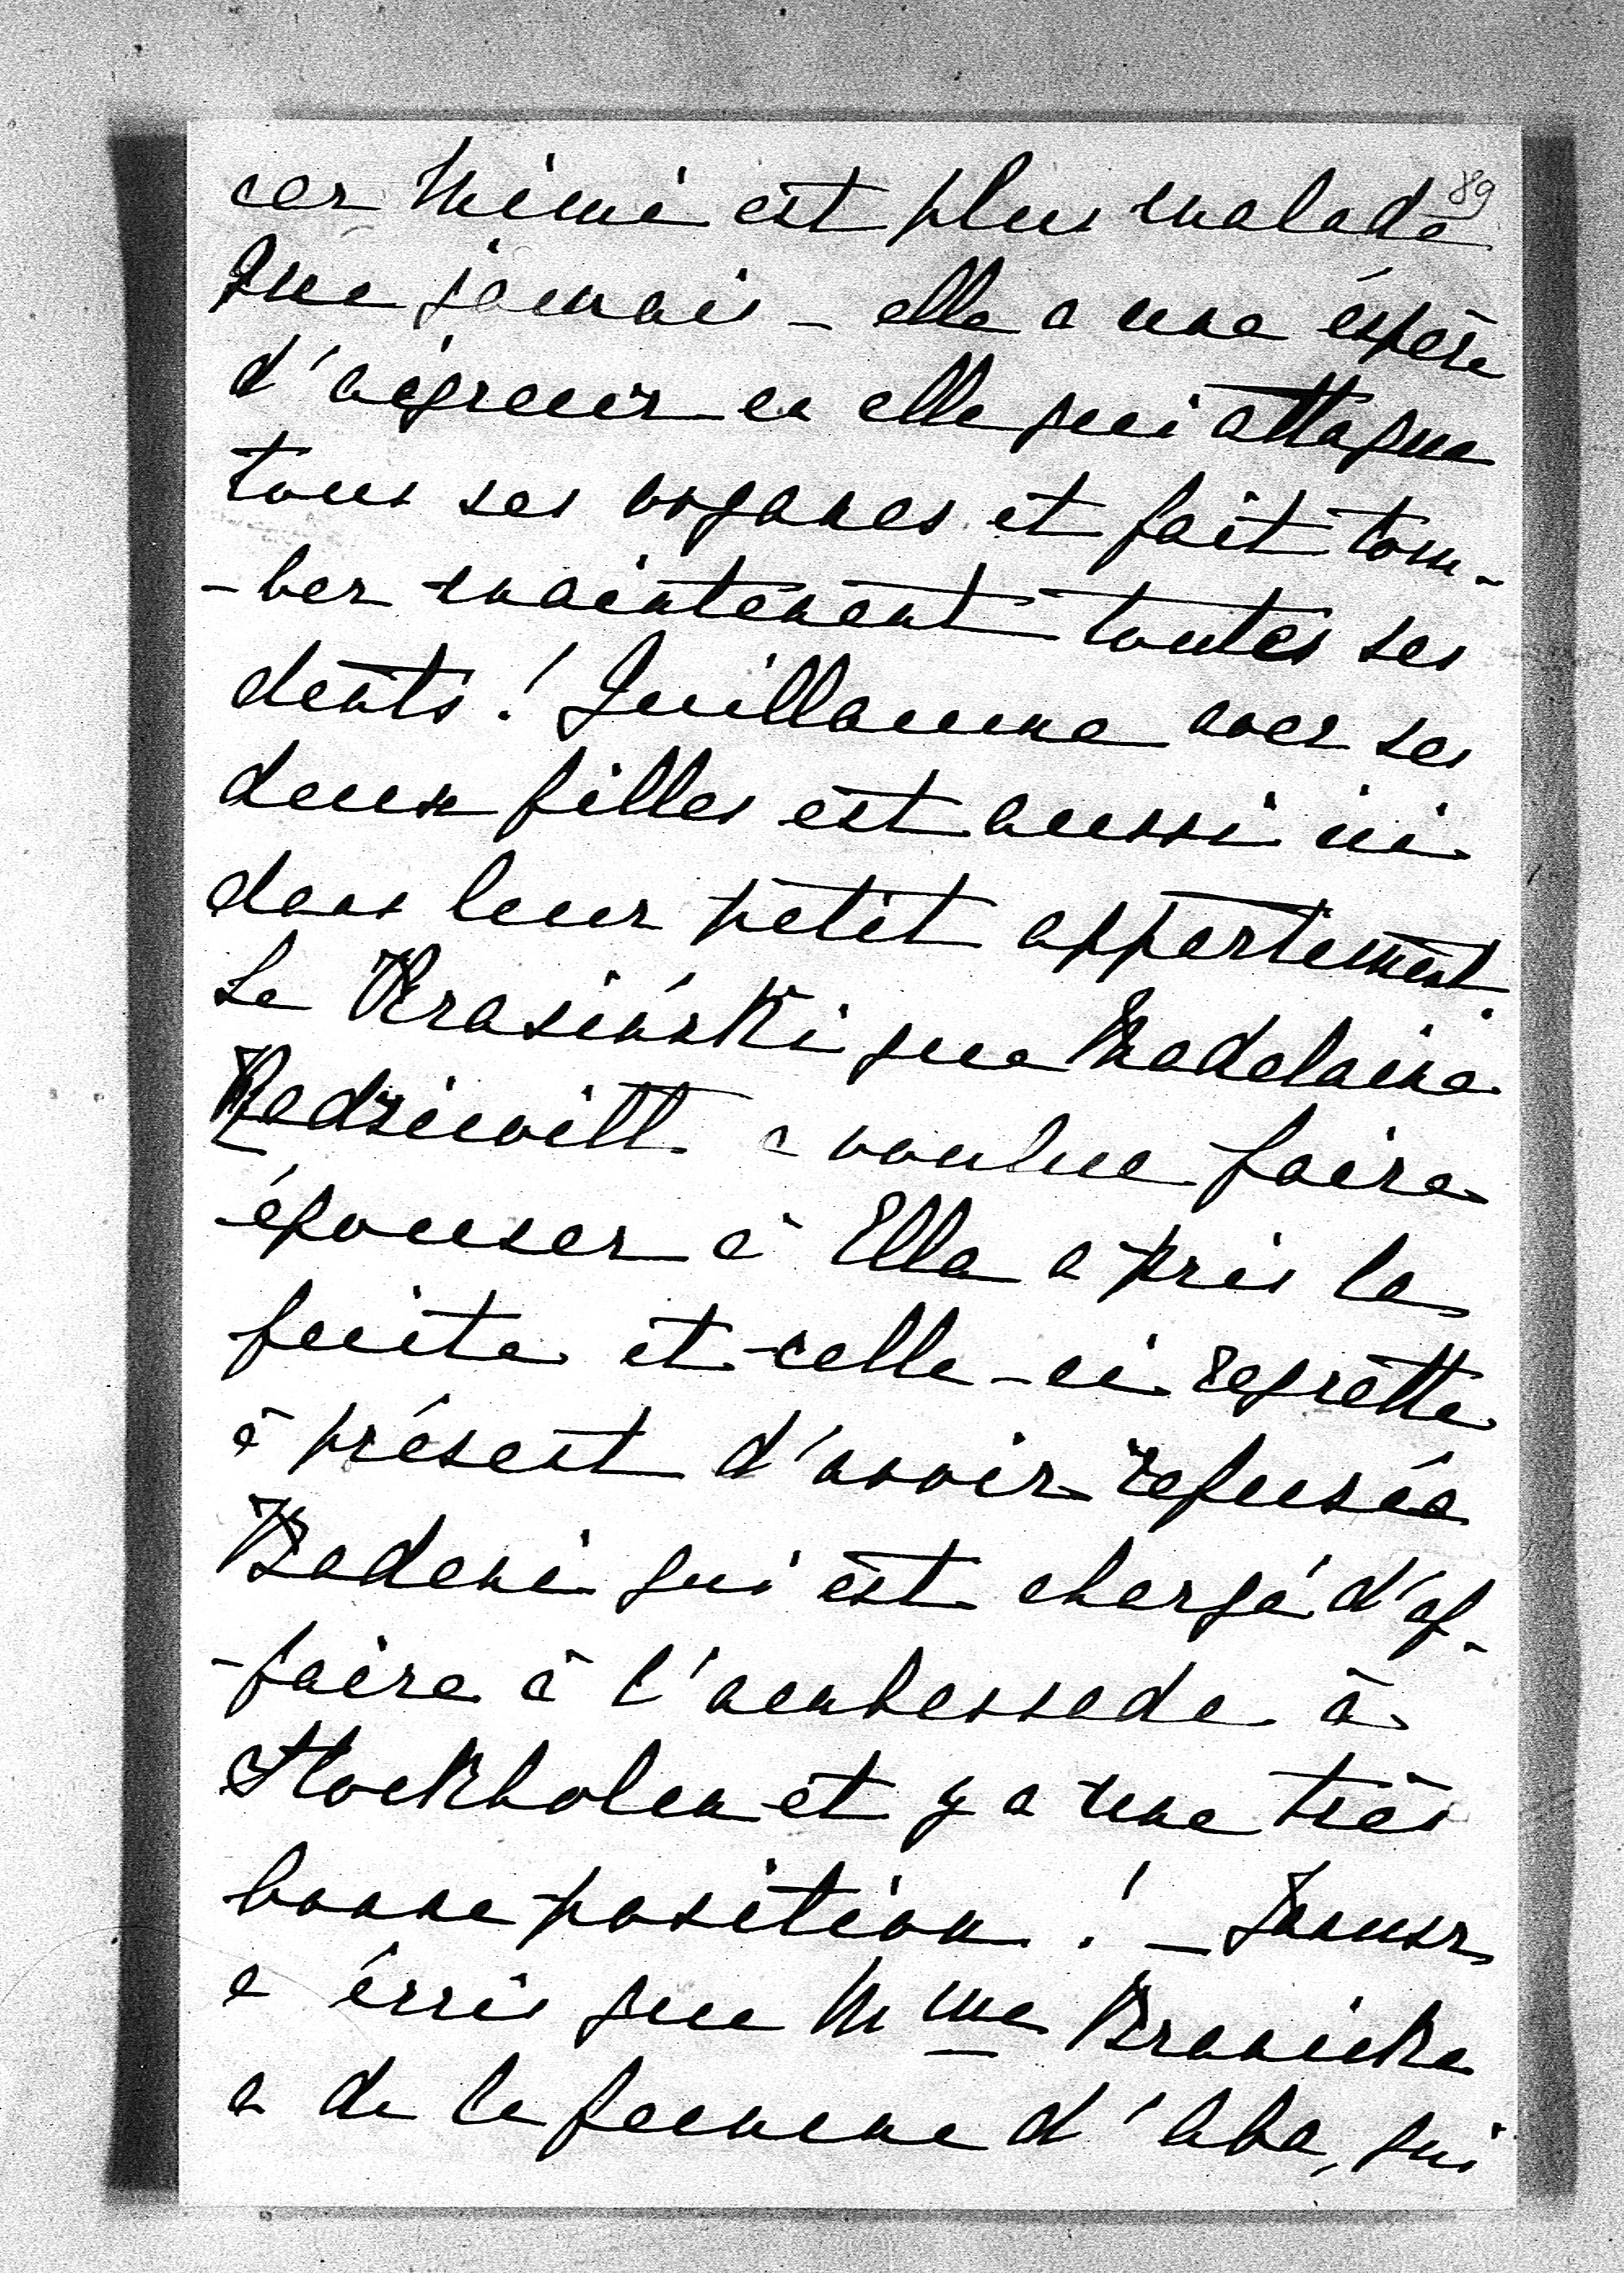 89
car Mimi est plus malade
que jamais – elle a une éspèce
d'aigreur en elle qui attaque
tous ses organes et fait tom-
-ber maintenant toutes ses
dents! Guillaume avec ses
deux filles est aussi ici
dans leur petit appartement.
Le Krasiński que Madelaine
Radziwill a voulue faire
épouser à Ella a pris la
fuite et celle-ci regrette
à présent d'avoir refusée
Badeni qui est chargé d'af-
-faire à l'ambassade à
Stockholm et y a une très
bonne position! – Janusz
a écris que Mme Branicka
a de la femme d'Aba, qui